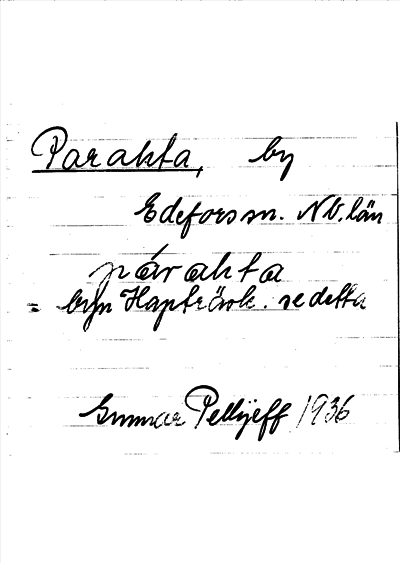 Parakta, by
Edefors sn. Nb. län
párakta
= byn Hapträsk. se detta
Gunnar Pellijeff 1936